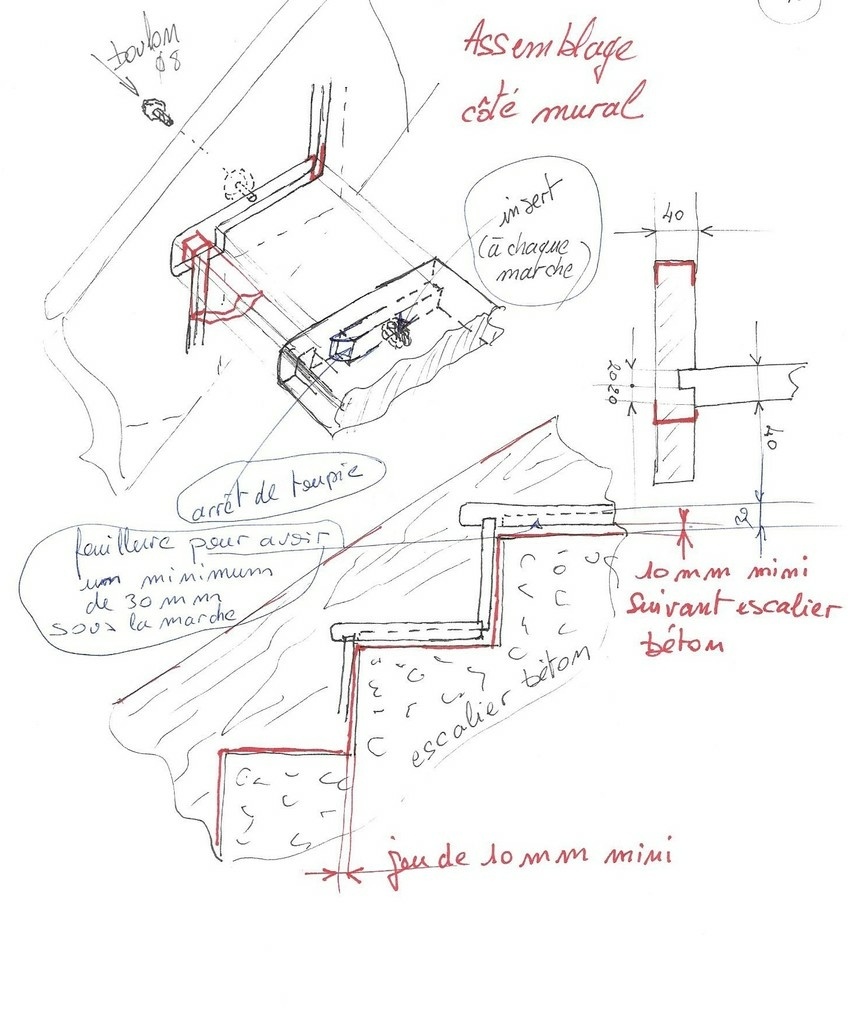 Boulon
ø8
Assemblage
côté mural
insert
(à chaque
marche)
40
20 20
40
arrêt de toupie
feuillure pour avoir
un minimum
de 30 mm
sous la marche
10 mm mini
suivant escalier
béton
escalier béton
jeu de 10 mm mini